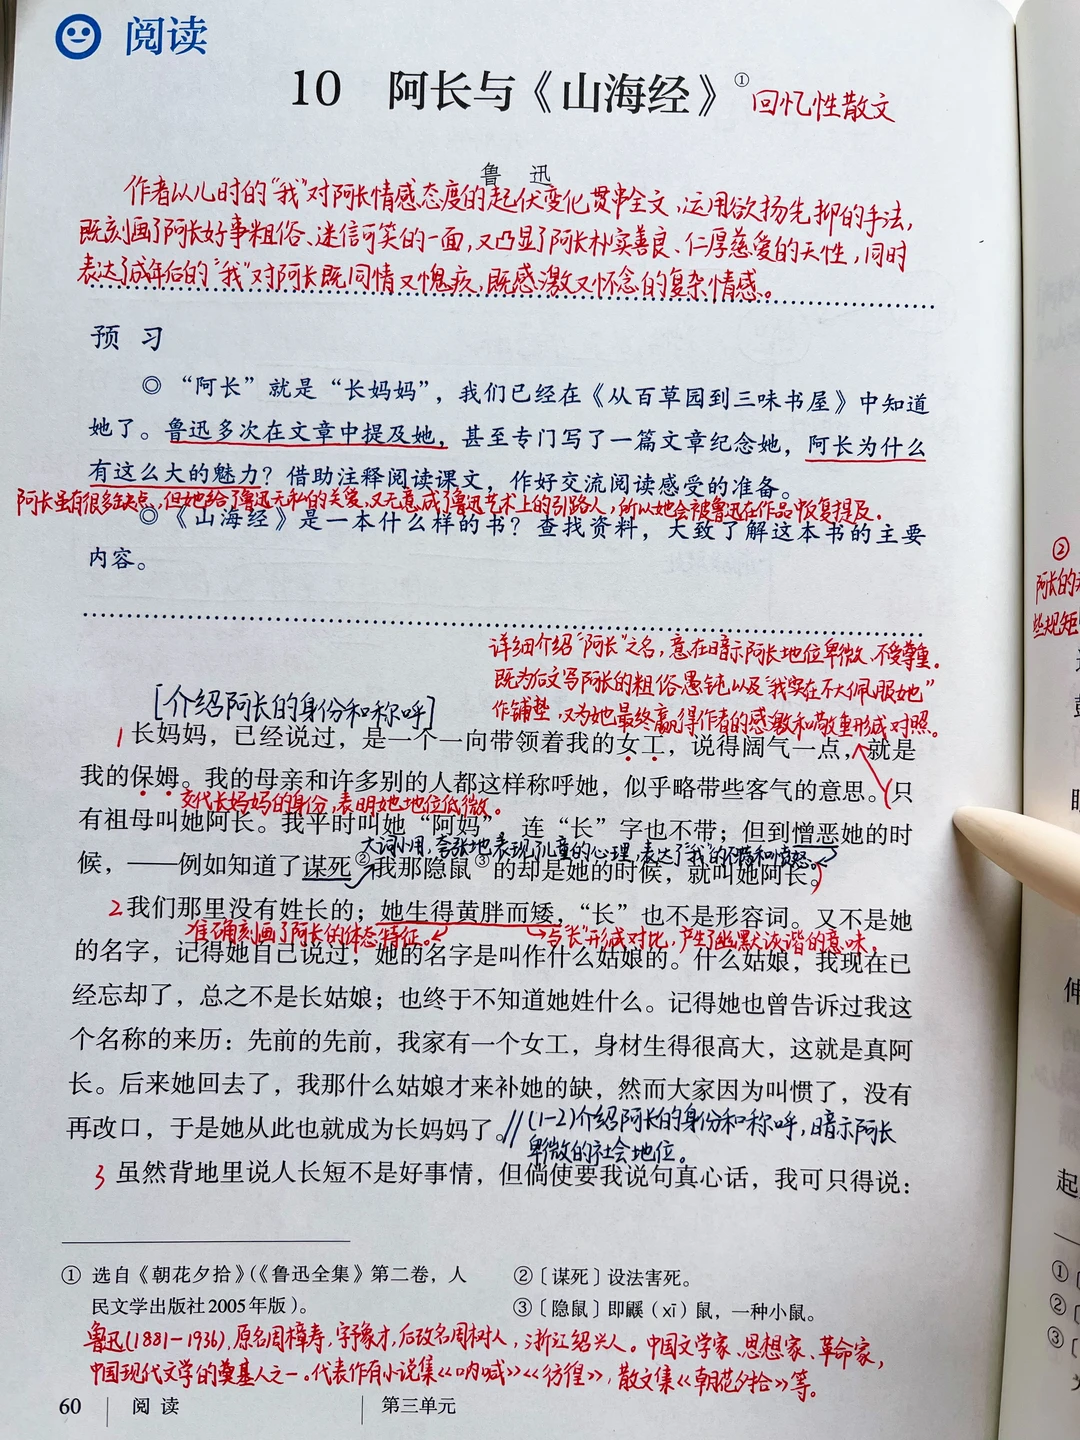 阅读
10 阿长与《山海经》① 回忆性散文
鲁 迅
作者从儿时的“我”对阿长情感态度的起伏变化贯串全文,运用欲扬先抑的手法,
既刻画了阿长好事粗俗、迷信可笑的一面,又凸显了阿长朴实善良、仁厚慈爱的天性,同时
表达了成年后的“我”对阿长既同情又愧疚,既感激又怀念的复杂情感。
预 习
◎ “阿长”就是“长妈妈”，我们已经在《从百草园到三味书屋》中知道
她了。鲁迅多次在文章中提及她，甚至专门写了一篇文章纪念她，阿长为什么
有这么大的魅力？借助注释阅读课文，作好交流阅读感受的准备。
阿长虽有很多缺点,但她给了鲁迅无私的关爱,又无意成了鲁迅艺术上的引路人,所以她会被鲁迅在作品中反复提及.
◎ 《山海经》是一本什么样的书？查找资料，大致了解这本书的主要
内容。
②
阿长的
些规矩
详细介绍“阿长”之名,意在暗示阿长地位卑微、不受尊重.
既为后文写阿长的粗俗愚钝以及“我实在不大佩服她”
作铺垫,又为她最终赢得作者的感激和敬重形成对照。
[介绍阿长的身份和称呼]
1 长妈妈，已经说过，是一个一向带领着我的女工，说得阔气一点，就是
我的保姆。我的母亲和许多别的人都这样称呼她，似乎略带些客气的意思。只
交代长妈妈的身份,表明她地位低微。
有祖母叫她阿长。我平时叫她“阿妈”，连“长”字也不带；但到憎恶她的时
大词小用,夸张地表现了儿童的心理,表达了“我”的不满和愤怒。
候，——例如知道了谋死②我那隐鼠③的却是她的时候，就叫她阿长。
2 我们那里没有姓长的；她生得黄胖而矮，“长”也不是形容词。又不是她
准确刻画了阿长的体态特征。 与“长”形成对比,产生了幽默诙谐的意味,
的名字，记得她自己说过，她的名字是叫作什么姑娘的。什么姑娘，我现在已
经忘却了，总之不是长姑娘；也终于不知道她姓什么。记得她也曾告诉过我这
个名称的来历：先前的先前，我家有一个女工，身材生得很高大，这就是真阿
长。后来她回去了，我那什么姑娘才来补她的缺，然而大家因为叫惯了，没有
再改口，于是她从此也就成为长妈妈了。// (1-2)介绍阿长的身份和称呼,暗示阿长
卑微的社会地位。
3 虽然背地里说人长短不是好事情，但倘使要我说句真心话，我可只得说：
伸
起
① 选自《朝花夕拾》（《鲁迅全集》第二卷，人
民文学出版社2005年版）。
②〔谋死〕设法害死。
③〔隐鼠〕即鼷（xī）鼠，一种小鼠。
①
②
③
鲁迅(1881-1936),原名周樟寿,字豫才,后改名周树人,浙江绍兴人。中国文学家、思想家、革命家,
中国现代文学的奠基人之一。代表作有小说集《呐喊》《彷徨》,散文集《朝花夕拾》等。
60 阅 读 第三单元